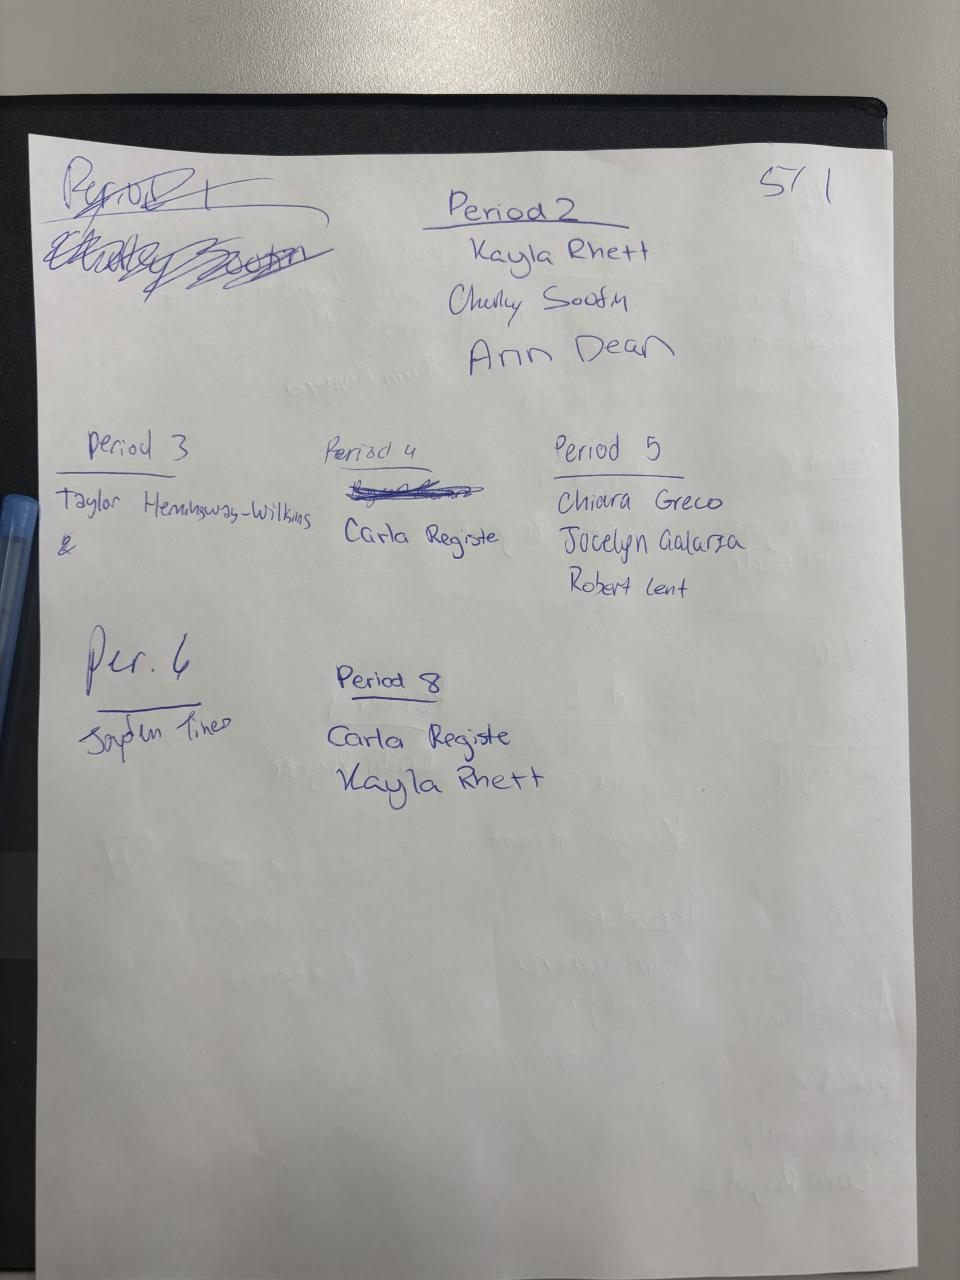 5/1
Period 1
Period 2
Kayla Rhett
Ann Dean
Period 3
Taylor Hemingway-Wilkins
Period 4
Carla Registe
Period 5
Chiara Greco
Jocelyn Galarza
Robert Lent
Per. 6
Jayden Tineo
Period 8
Carla Registe
Kayla Rhett